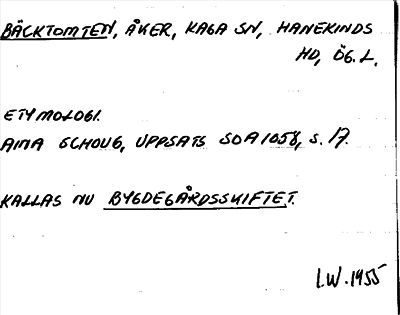 BÄCKTOMTEN, ÅKER, KAGA SN, HANEKINDS
HD, ÖG. L.
ETYMOLOGI.
AINA SCHOUG, UPPSATS SOA 1058, S. 17.
KALLAS NU BYGDEGÅRDSSKIFTET.
I.W. 1955